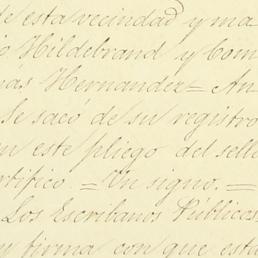 de esta vecindad y ma
o Hildebrand y Com
nas Hernandez = An
Se sacó de su registro
n este pliego del sell
ertifico. = Un signo. =
Los Escribanos Públicos
y firma con que esta